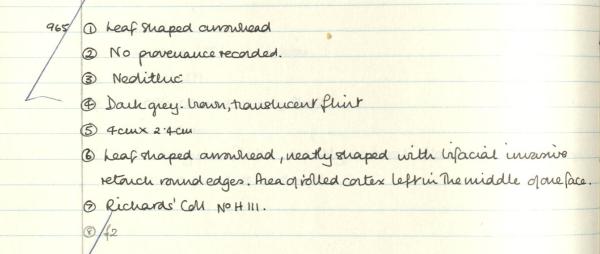 965 ① Leaf shaped arrowhead
② No provenance recorded.
③ Neolithic
④ Dark grey-brown, translucent flint
⑤ 4cm x 2.4cm
⑥ Leaf shaped arrowhead, neatly shaped with bifacial invasive
retouch round edges. Area of rolled cortex left in the middle of one face.
⑦ Richards' Coll No H 111.
⑧ f2